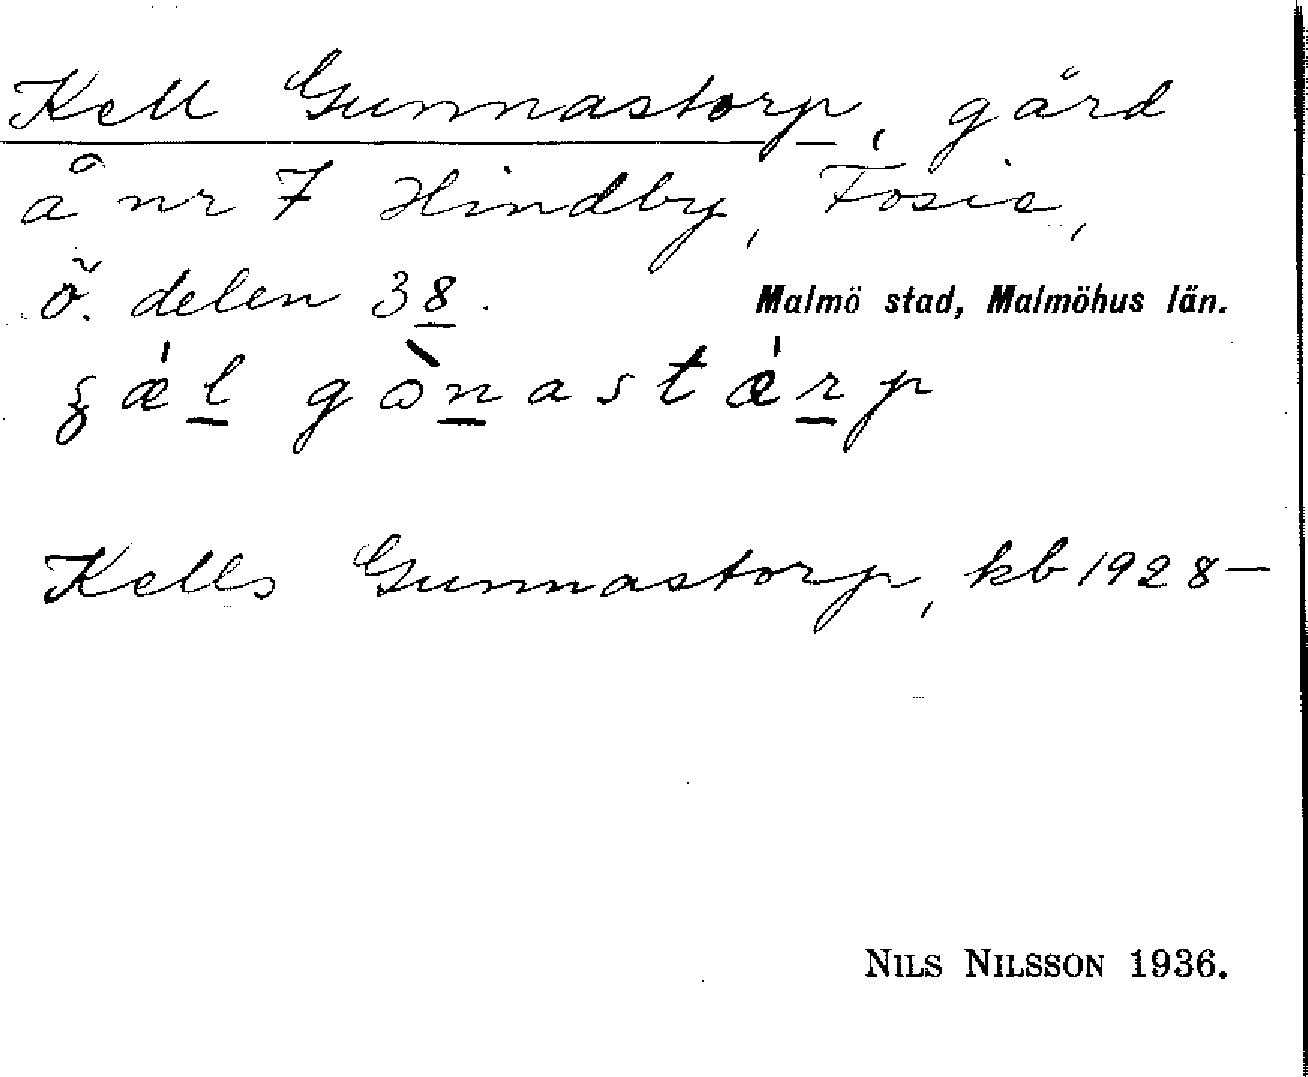 Kell Gunnastorp, gård
å nr 7 Hindby, Fosie,
ö. delen 38.
Malmö stad, Malmöhus län.
Kells Gunnastorp, kb 1928—
NILS NILSSON 1936.